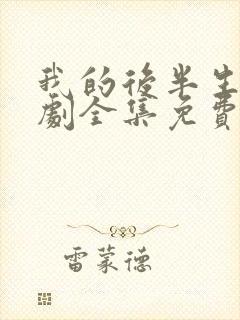 我的後半生
劇全集免費
雷蒙德